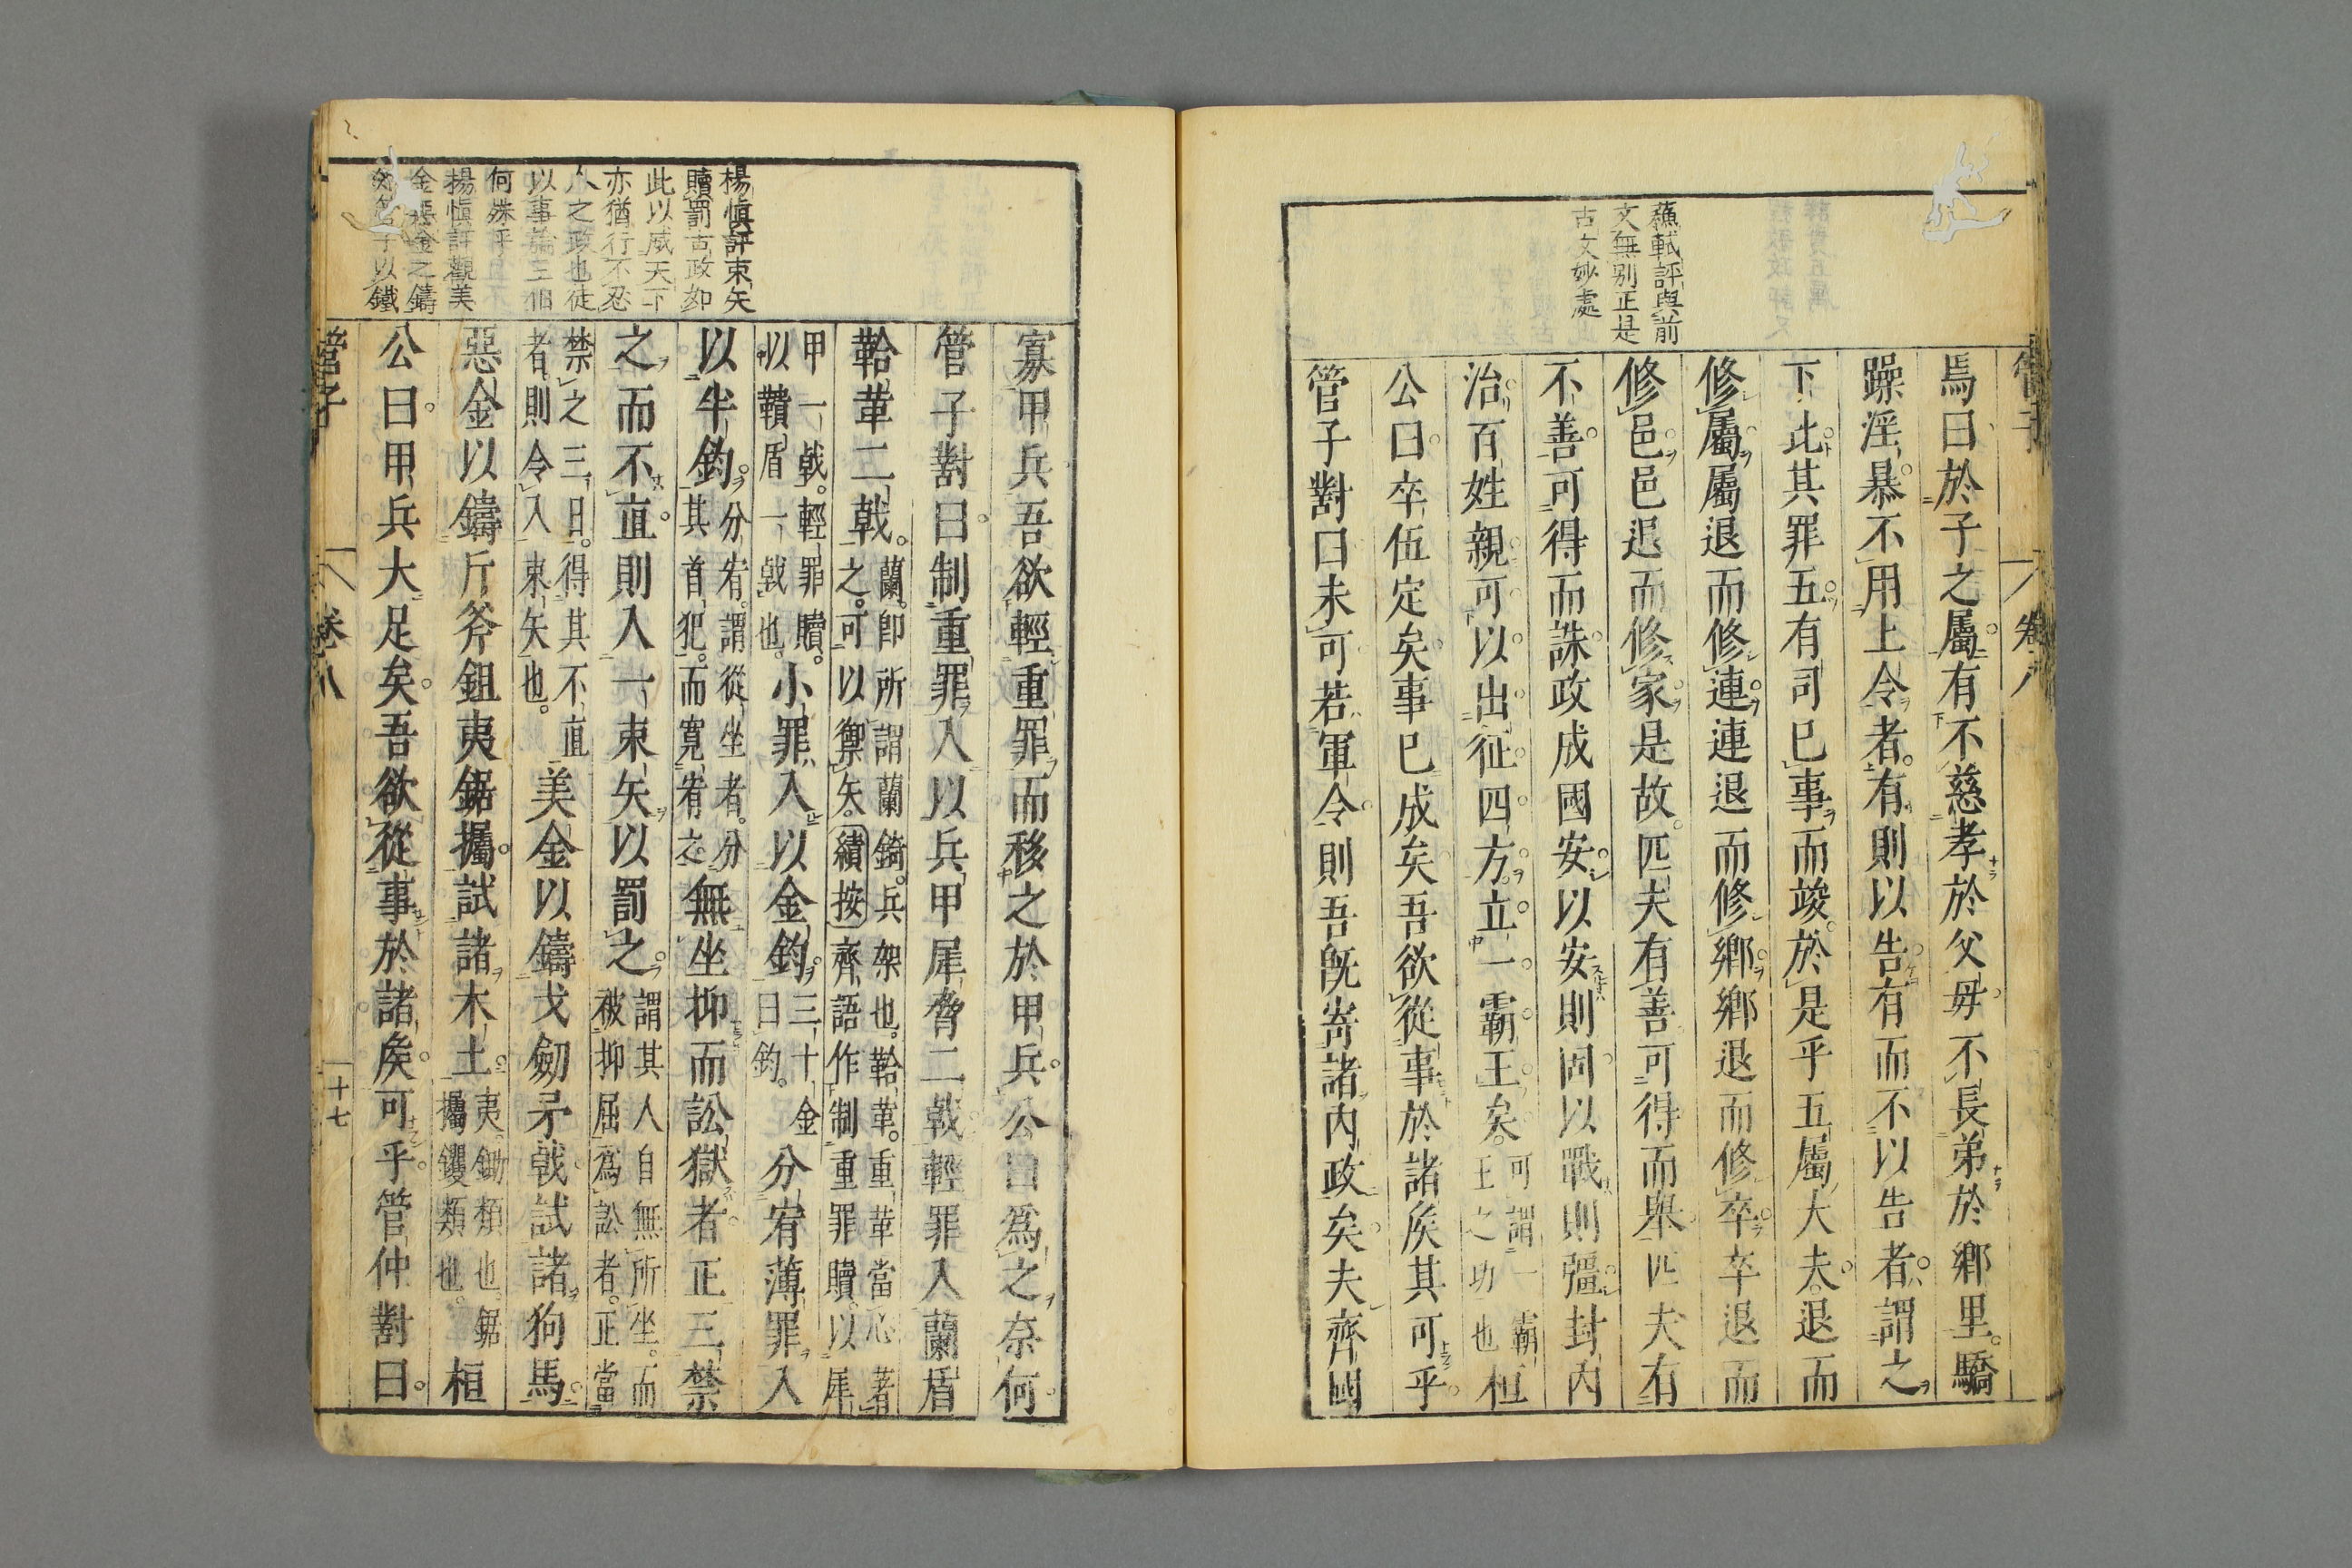 蘓軾評與前
文無別正是
古文妙處
管子
卷八
焉曰於子之屬有不慈孝於父毋不長弟於鄉里驕
躁淫暴不用上令者有則以告有而不以告者謂之
下比其罪五有司已事而竣於是乎五屬大夫退而
修屬屬退而修連連退而修鄉鄉退而修卒卒退而
修邑邑退而修家是故匹夫有善可得而舉匹夫有
不善可得而誅政成國安以安則固以戰則彊封內
治百姓親可以出征四方立一霸王矣
可謂一霸
王之功也
桓
公曰卒伍定矣事已成矣吾欲從事於諸矦其可乎
管子對曰未可若軍令則吾旣寄諸內政矣夫齊國
楊愼評束矢
贖罰古政如
此以威天下
亦猶行不忍
人之政也徒
以事論三伯
何殊乎
楊愼評觀美
金惡金之鑄
以鐵
寡甲兵吾欲輕重罪而移之於甲兵公曰爲之奈何
管子對曰制重罪入以兵甲犀脅二戟輕罪入蘭盾
鞈革二戟
蘭即所謂蘭錡兵架也鞈革重革當心者
之可以禦矢績按齊語作制重罪贖以犀
甲一戟輕罪贖
以鞼盾一戟也
小罪入以金鈞
三十金
曰鈞
分宥薄罪入
以半鈞
分宥謂從坐者分
其首犯而寬宥之
無坐抑而訟獄者正三禁
之而不直則入一束矢以罰之
謂其人自無所坐而
被抑屈爲訟者正當
禁之三日得其不直
者則令入束矢也
美金以鑄戈劒矛戟試諸狗馬
惡金以鑄斤斧鉏夷鋸欘試諸木土
夷鋤類也鋸
欘钁類也
桓
公曰甲兵大足矣吾欲從事於諸矦可乎管仲對曰
管子
卷八
十七